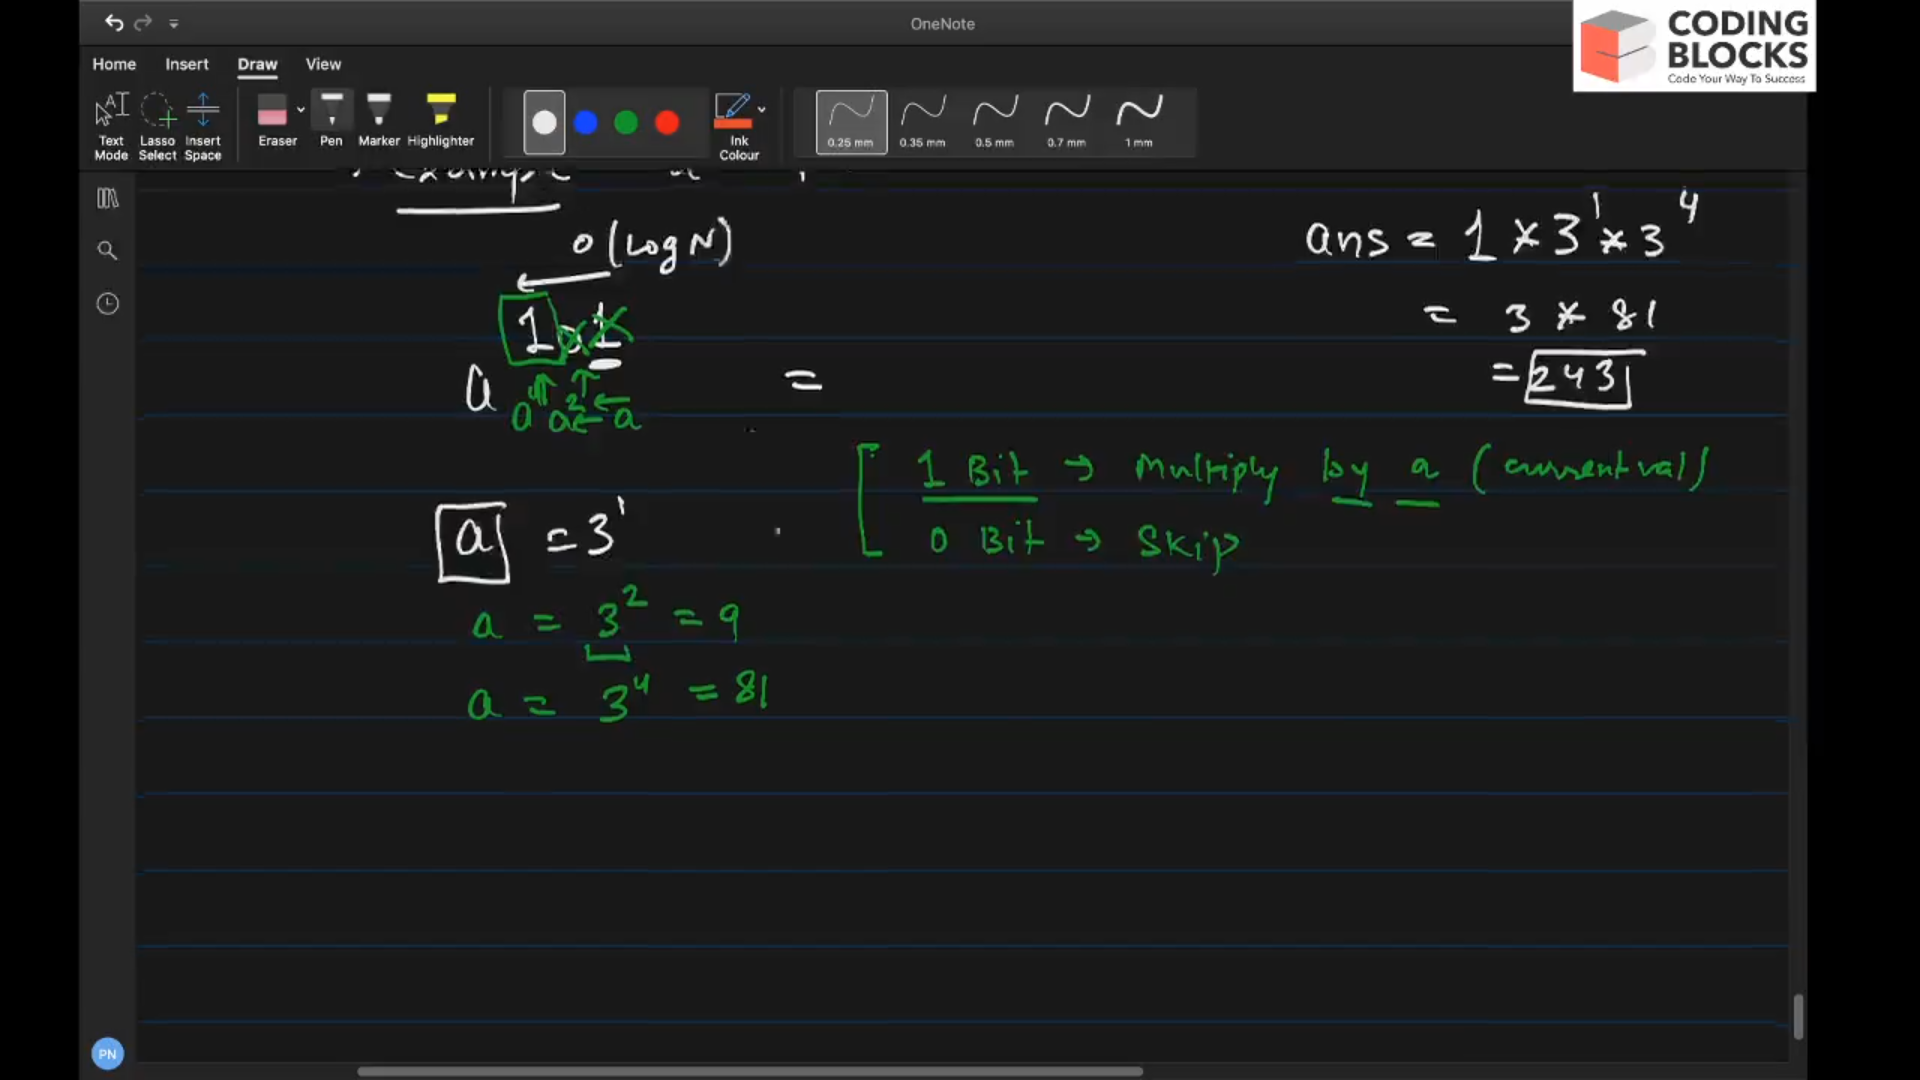 OneNote
CODING
BLOCKS
Code Your Way To Success
Home Insert Draw View
Text Mode
Lasso Select
Insert Space
Eraser
Pen
Marker
Highlighter
Ink Colour
0.25 mm
0.35 mm
0.5 mm
0.7 mm
1 mm
O(LogN)
ans = 1 * 3^1 * 3^4
= 3 * 81
= 243
1 0 1
a =
a^4 a^2 a
1 Bit → Multiply by a (current val)
0 Bit → Skip
a = 3^1
a = 3^2 = 9
a = 3^4 = 81
PN